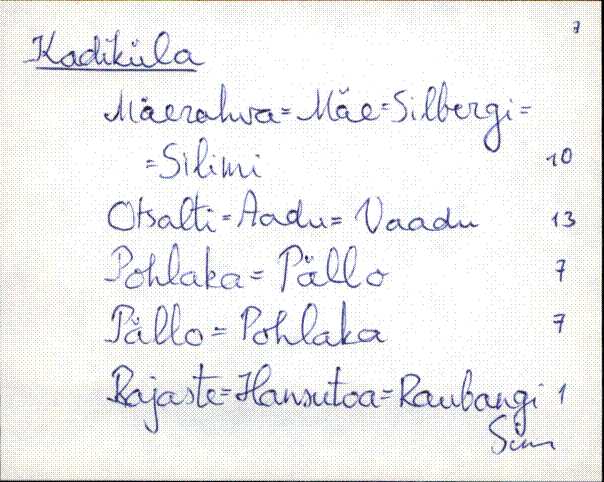 7
Kadiküla
Mäerahva = Mäe = Silbergi =
= Silimi 10
Otsalti = Aadu = Vaadu 13
Pohlaka = Pällo 7
Pällo = Pohlaka 7
Rajaste = Hansutoa = Raubangi 1